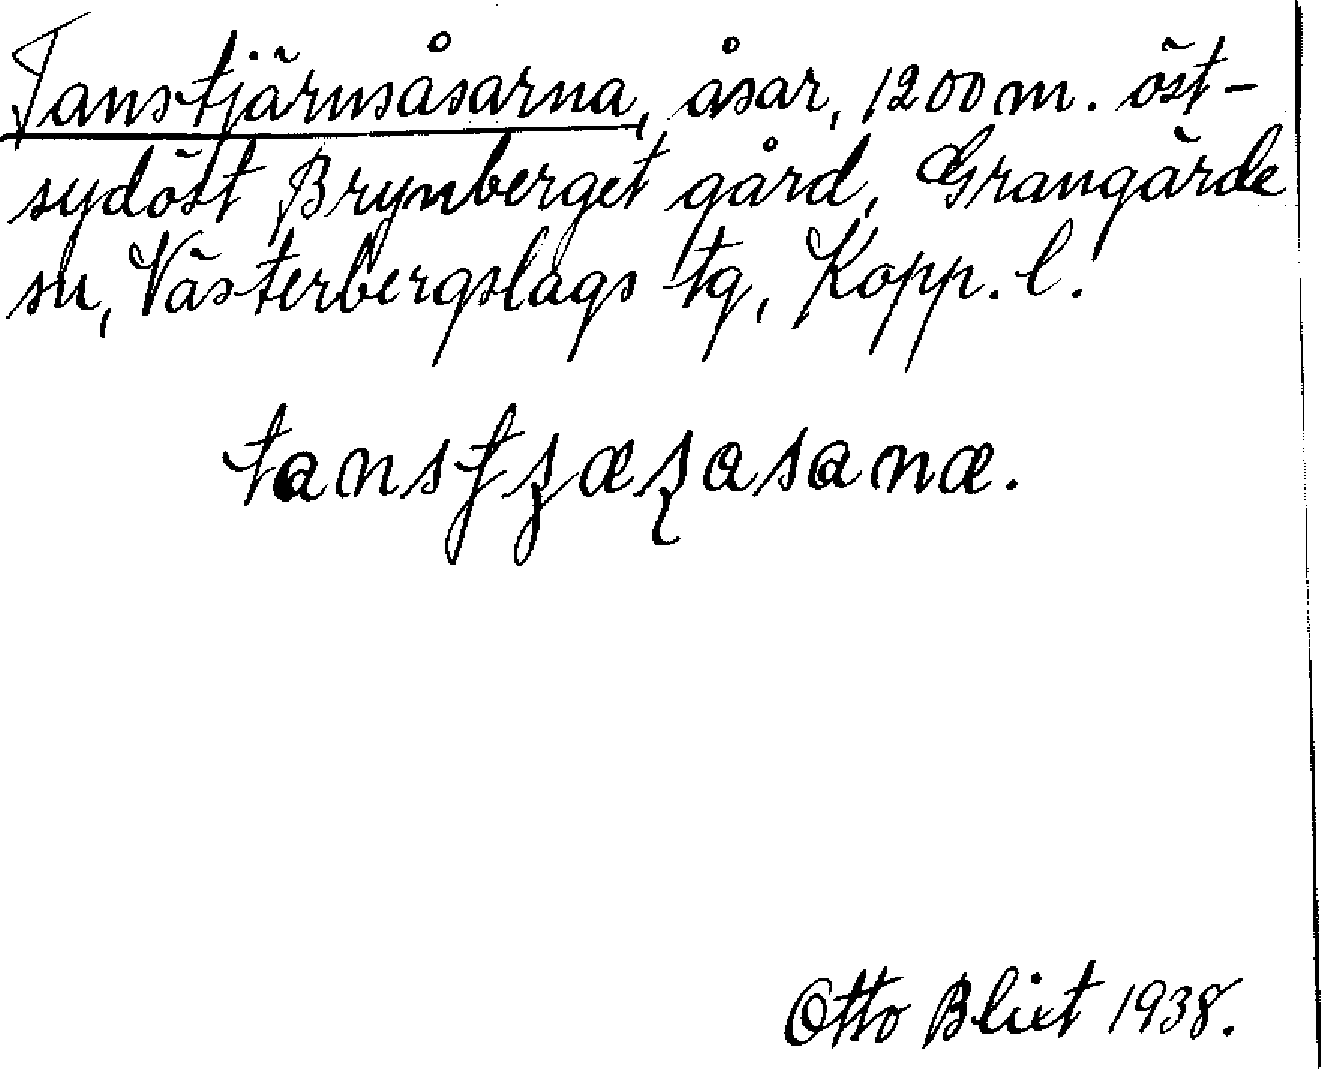 Tanstjärnsåsarna, åsar, 1200 m. öst-
sydöst Brynberget gård, Grangärde
sn, Västerbergslags tg, Kopp. l.
Otto Blixt 1938.